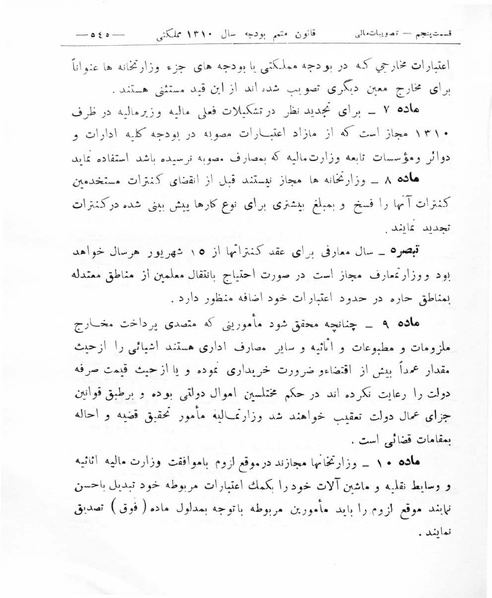 قسمت پنجم — تصویبات مالی قانون متمم بودجه سال ۱۳۱۰ مملکتی —۵۴۵—
اعتبارات مخارجی که در بودجه مملکتی یا بودجه های جزء وزارتخانه ها عنواناً
برای مخارج معین دیگری تصویب شده اند از این قید مستثنی هستند .
ماده ۷ — برای تجدید نظر در تشکیلات فعلی مالیه وزیر مالیه در ظرف
۱۳۱۰ مجاز است که از مازاد اعتبارات مصوبه در بودجه کلیه ادارات و
دوائر ومؤسسات تابعه وزارت مالیه که بمصارف مصوبه نرسیده باشد استفاده نماید
ماده ۸ — وزارتخانه ها مجاز نیستند قبل از انقضای کنترات مستخدمین
کنترات آنها را فسخ و بمبلغ بیشتری برای نوع کارها پیش بینی شده در کنترات
تجدید نمایند .
تبصره — سال معارفی برای عقد کنتراتها از ۱۵ شهریور هرسال خواهد
بود و وزارت معارف مجاز است در صورت احتیاج بانتقال معلمین از مناطق معتدله
بمناطق حاره در حدود اعتبارات خود اضافه منظور دارد .
ماده ۹ — چنانچه محقق شود مأمورینی که متصدی پرداخت مخارج
ملزومات و مطبوعات و اثاثیه و سایر مصارف اداری هستند اشیائی را از حیث
مقدار عمداً بیش از اقتضاءو ضرورت خریداری نموده و یا از حیث قیمت صرفه
دولت را رعایت نکرده اند در حکم مختلسین اموال دولتی بوده و برطبق قوانین
جزای عمال دولت تعقیب خواهند شد وزارتمالیه مأمور تحقیق قضیه و احاله
بمقامات قضائی است .
ماده ۱۰ — وزارتخانها مجازند درموقع لزوم باموافقت وزارت مالیه اثاثیه
و وسایط نقلیه و ماشین آلات خود را بکمك اعتبارات مربوطه خود تبدیل باحسن
نمایند موقع لزوم را باید مأمورین مربوطه با توجه بمدلول ماده (فوق) تصدیق
نمایند .